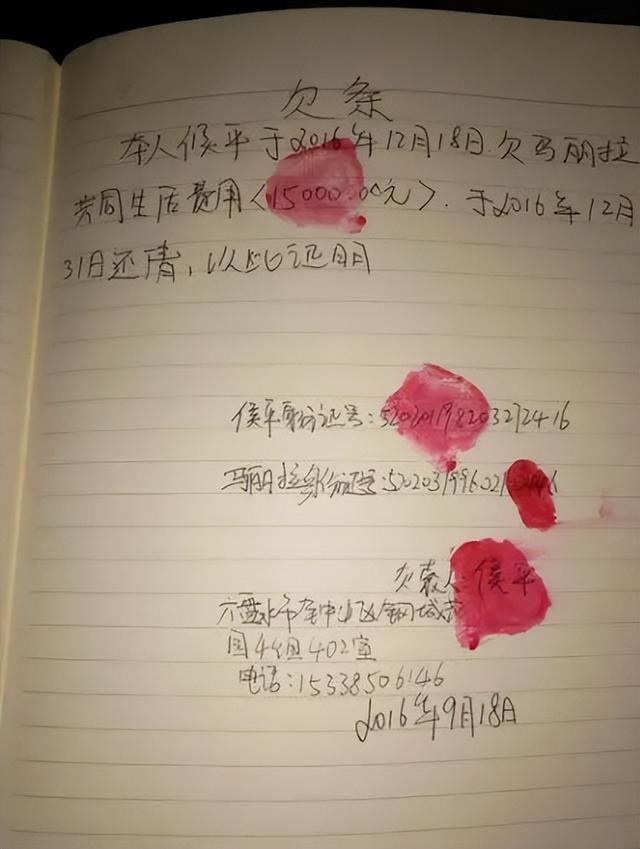 欠条
本人侯平于2016年12月18日欠马丽拉
共同生活费用<15000.00元>.于2016年12月
31日还清，以此证明
侯平身份证号：520201198203272416
马丽拉身份证号：
欠款人：侯平
六盘水市钟山区钢城花
园4组402室
电话：15338506146
2016年9月18日